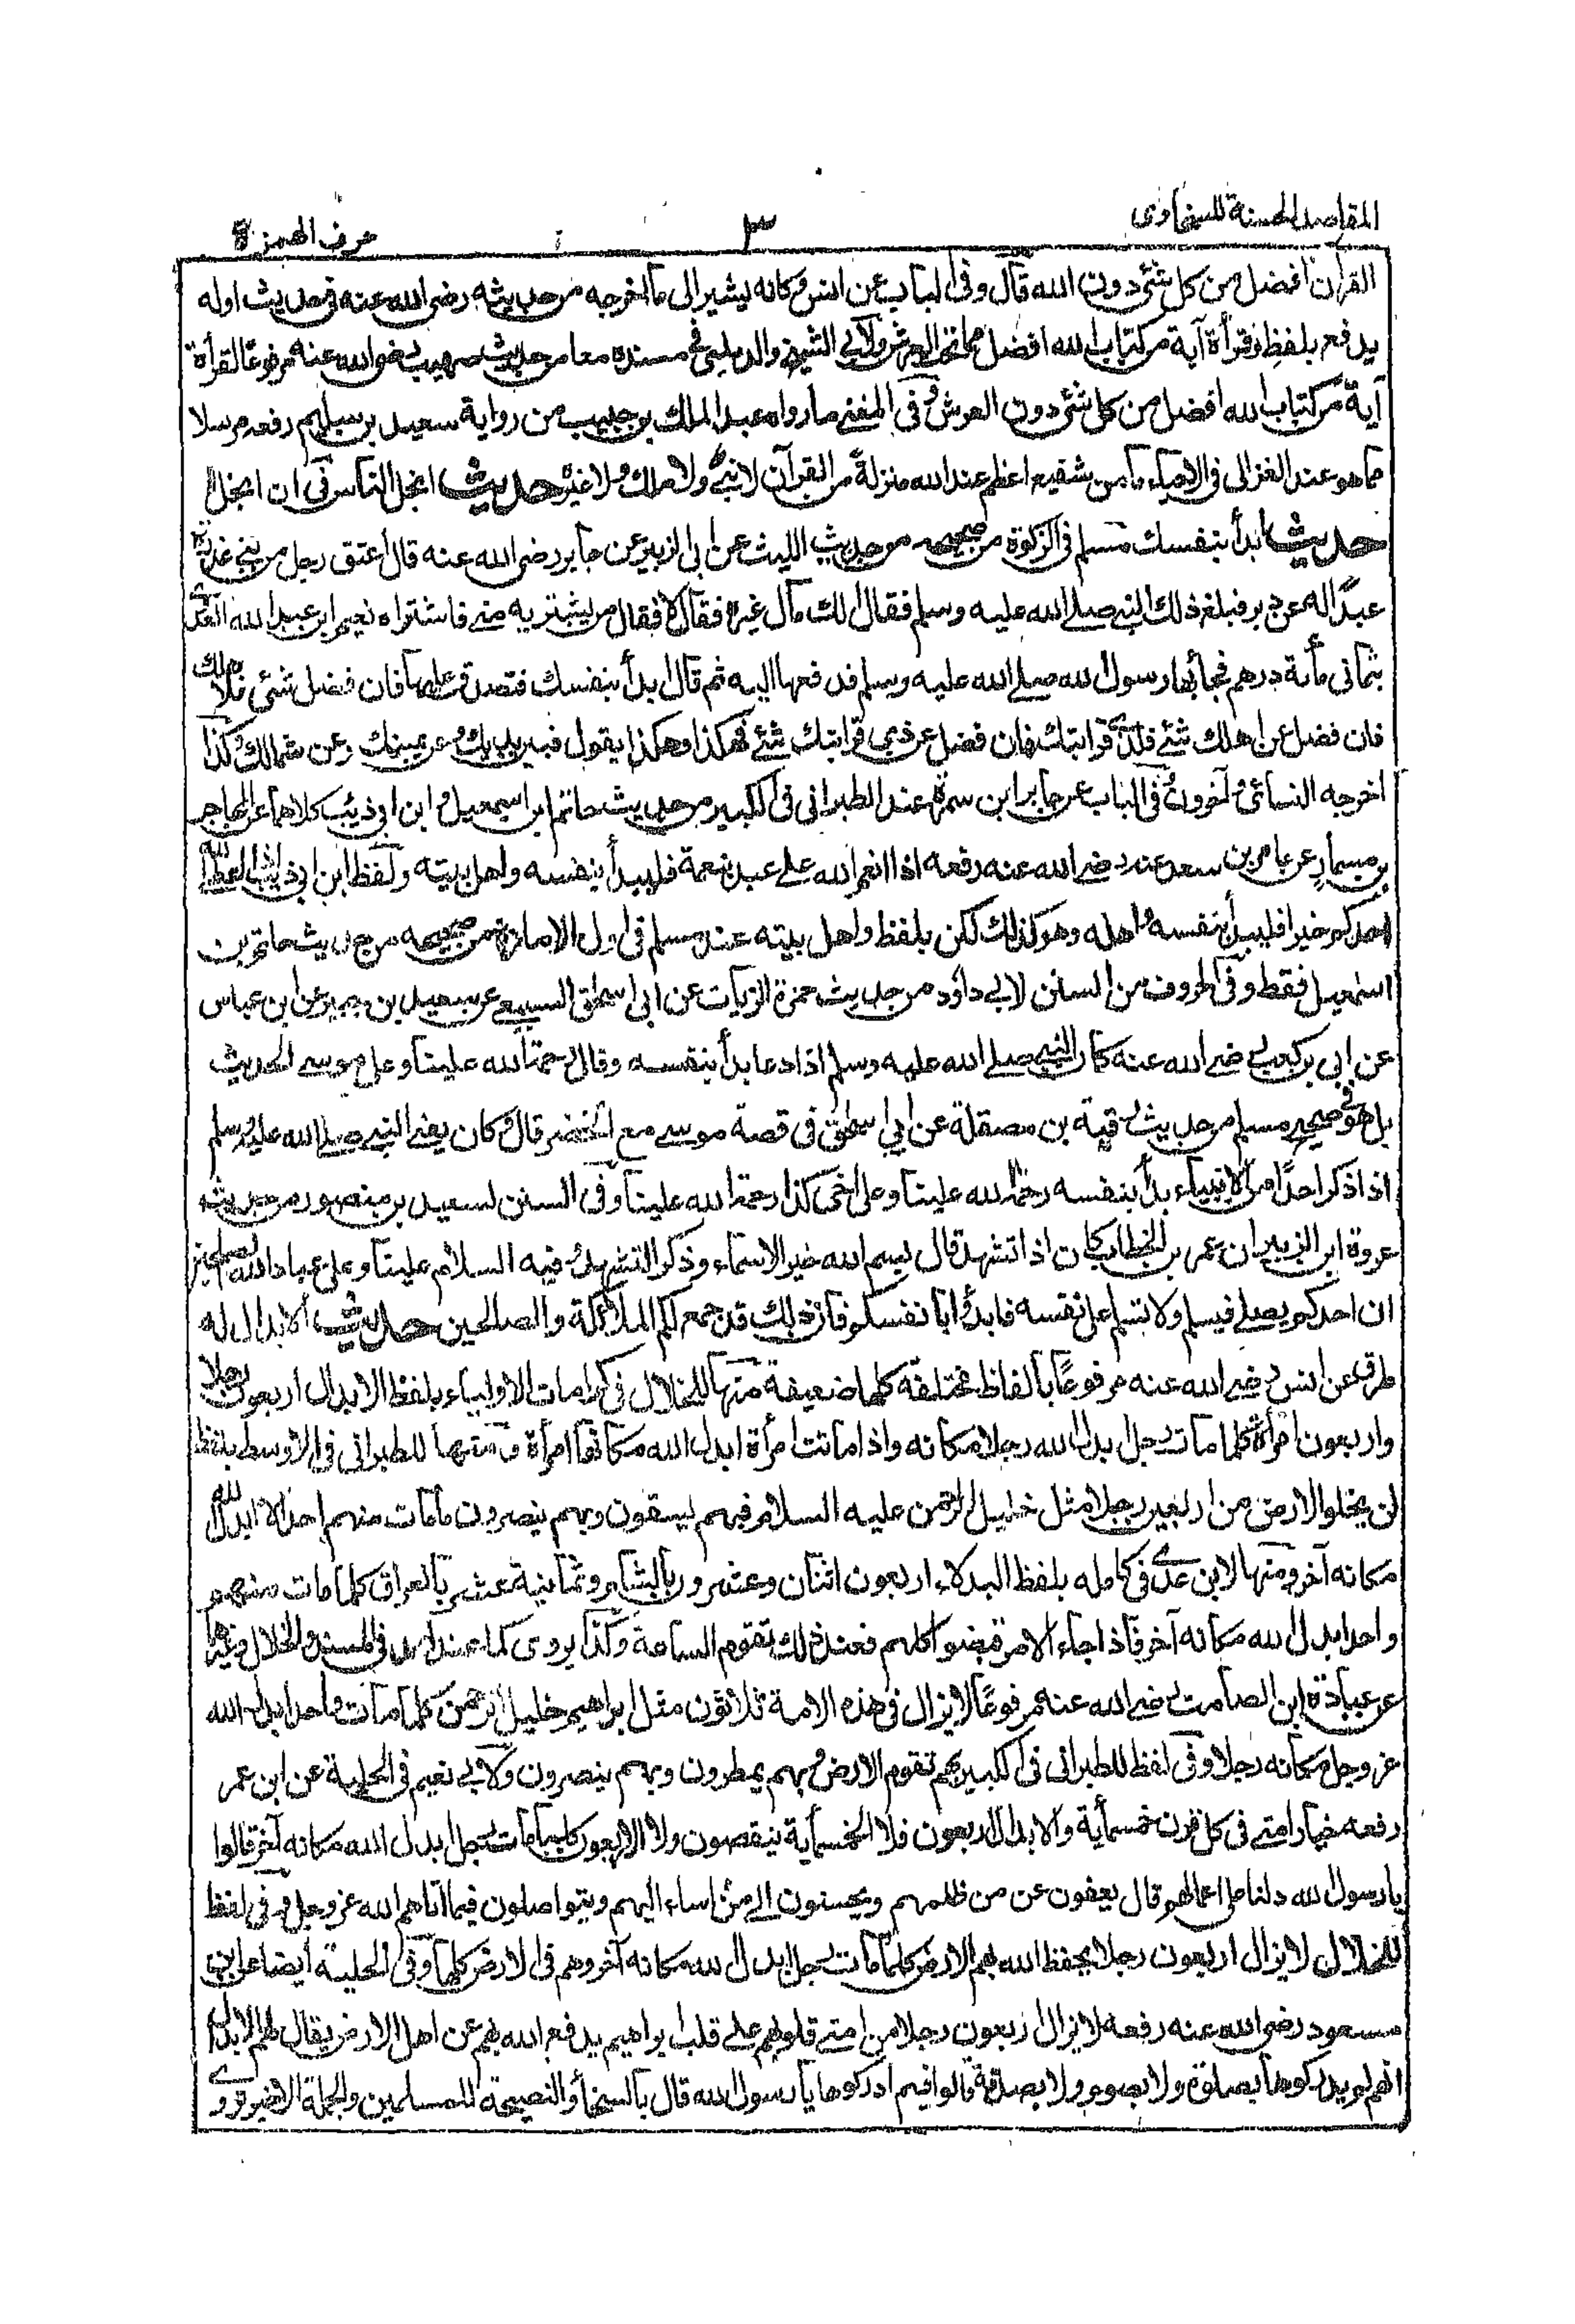 المقاصد الحسنة للسخاوى ٣ حرف الهمزة
القرآن افضل من كل شئ دون الله قال وفى الباب عن انس وكانه يشير الى ما اخرجه من حديثه رضى الله عنه فى حديث اوله
يدفع بلفظ وقرأة آية من كتاب الله افضل مما تحت العرش ولابى الشيخ والديلمى فى مسنده معا من حديث صهيب رضى الله عنه مرفوعا لقرأة
آية من كتاب الله افضل من كل شئ دون العرش وفى المغنى مارواه عبد الملك بن حبيب من رواية سعيد بن سليم رفعه مرسلا
مما هو عند الغزالى فى الاحياء ما من شفيع اعظم عند الله منزلة من القرآن لا نبى ولا ملك ولا غيره حديث ابخل الناس فى ان ابخل
حديث ابدأ بنفسك مسلم فى الزكوة من صحيحه من حديث الليث عن ابى الزبير عن جابر رضى الله عنه قال اعتق رجل من بنى عذرة
عبدا له عن دبر فبلغ ذلك النبى صلى الله عليه وسلم فقال الك مال غيره فقال لا فقال من يشتريه منى فاشتراه نعيم ابن عبد الله العدوى
بثمانى مأة درهم فجا بها رسول الله صلى الله عليه وسلم فدفعها اليه ثم قال ابدأ بنفسك فتصدق عليها فان فضل شئ فلاهلك
فان فضل عن اهلك شئ فلذى قرابتك فان فضل عن ذى قرابتك شئ فهكذا وهكذا يقول فبين يديك وعن يمينك وعن شمالك وكذا
اخرجه النسائى وآخرون وفى الباب عن جابر ابن سمرة عند الطبرانى فى الكبير من حديث حاتم ابن اسمعيل و ابن ابى ذئب كلاهما عن المهاجر
بن مسمار عن عامر بن سعد عنه رضى الله عنه رفعه اذا انعم الله على عبد نعمة فليبدأ بنفسه واهل بيته ولفظ ابن ابى ذئب اذا اعطى الله
احدكم خيرا فليبدأ بنفسه واهله وهو كذلك لكن بلفظ واهل بيته عند مسلم فى اول الامارة من صحيحه من حديث حاتم بن
اسمعيل فقط وفى الحروف من السنن لابى داؤد من حديث حمزة الزيات عن ابى اسحاق السبيعى عن سعيد بن جبير عن ابن عباس
عن ابى بن كعب رضى الله عنه كان النبى صلى الله عليه وسلم اذا دعا بدأ بنفسه وقال رحمة الله علينا وعلى موسى الحديث
بل هو فى صحيح مسلم من حديث رقبة بن مصقلة عن ابى اسحاق فى قصة موسى مع الخضر قال وكان يعنى النبى صلى الله عليه وسلم
اذا ذكر احدا من الانبياء بدأ بنفسه رحمة الله علينا وعلى اخى كذا رحمة الله علينا وفى السنن لسعيد بن منصور من حديث
عروة ابن الزبير ان عمر بن الخطاب كان اذا تشهد قال بسم الله خير الاسماء وذكر التشهد وفيه السلام علينا وعلى عباد الله الصالحين
ان احدكم يصلى فيسلم ولا يسلم على نفسه فابدؤا بانفسكم فان ذلك قد جمع لكم الملائكة والصالحين حديث الابدال له
طرق عن انس رضى الله عنه مرفوعا بالفاظ مختلفة كلها ضعيفة منها للخلال فى كرامات الاولياء بلفظ الابدال اربعون رجلا
واربعون امرأة كلما مات رجل ابدل الله رجلا مكانه واذا ماتت امرأة ابدل الله مكانها امرأة ومنها للطبرانى فى الاوسط بلفظ
لن يخلو الارض من اربعين رجلا مثل خليل الرحمن عليه السلام فبهم يسقون وبهم ينصرون ما مات منهم احد الا ابدل الله
مكانه آخر ومنها لابن عدى فى كامله بلفظ البدلاء اربعون اثنان وعشرون بالشام وثمانية عشر بالعراق كلما مات منهم
واحد ابدل الله مكانه آخر فاذا جاء الامر قبضوا كلهم فعند ذلك تقوم الساعة وكذا يروى كما عند احمد فى المسند والخلال وغيرهما
عن عبادة ابن الصامت رضى الله عنه مرفوعا لا يزال فى هذه الامة ثلاثون مثل ابراهيم خليل الرحمن كلما مات واحد ابدل الله
عز وجل مكانه رجلا وفى لفظ للطبرانى فى الكبير بهم تقوم الارض وبهم يمطرون وبهم ينصرون ولابى نعيم فى الحلية عن ابن عمر
رفعه خيار امتى فى كل قرن خمسمأية والابدال اربعون فلا الخمسمأية ينقصون ولا الاربعون كلما مات رجل ابدل الله مكانه آخر قالوا
يا رسول الله دلنا على اعمالهم قال يعفون عن من ظلمهم ويحسنون الى من اساء اليهم ويتواصلون فيما اتاهم الله عز وجل وفى لفظ
للخلال لا يزال اربعون رجلا يحفظ الله بهم الارض كلما مات رجل ابدل الله مكانه آخر وهم فى الارض كلها وفى الحلية ايضا عن ابن
مسعود رضى الله عنه رفعه لا يزال اربعون رجلا من امتى قلوبهم على قلب ابراهيم يدفع الله بهم عن اهل الارض يقال لهم الابدال
انهم لم يدركوها بصلوة ولا بصوم ولا بصدقة قالوا فبم ادركوها يا رسول الله قال بالسخاء والنصيحة للمسلمين والجملة الاخيرة تروى